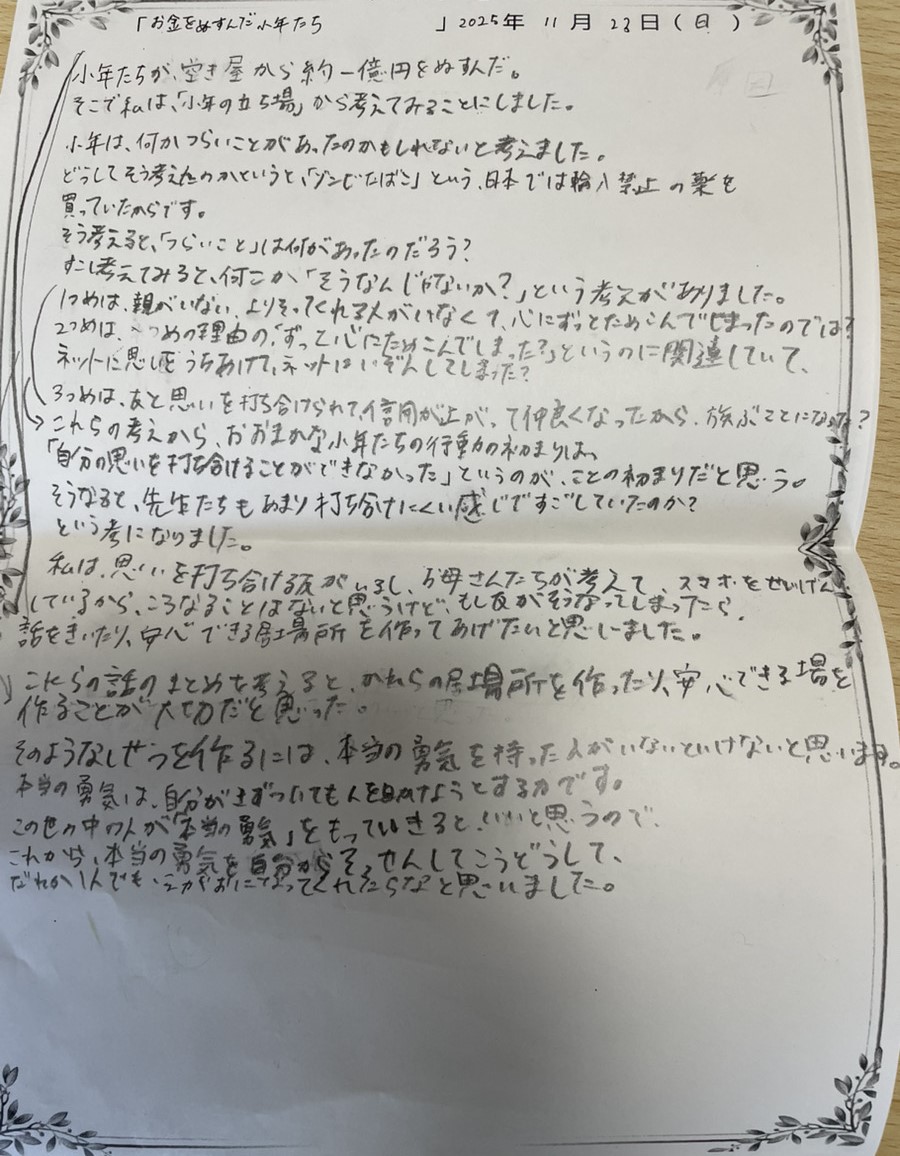 「お金をぬすんだ小年たち 」2025年 11月 23日(日)
小年たちが、空き屋から約一億円をぬすんだ。
そこで私は、「小年の立ち場」から考えてみることにしました。
小年は、何かつらいことがあったのかもしれないと考えました。
どうしてそう考えたのかというと、「ゾンビたばこ」という、日本では輸入禁止の薬を
買っていたからです。
そう考えると、「つらいこと」は何があったのだろう?
すこし考えてみると、何こか「そうなんじゃないか?」という考えがありました。
1つめは、親がいない、よりそってくれる人がいなくて、心にずっとためこんでしまったのでは?
2つめは、1つめの理由の「ずっと心にためこんでしまった?」というのに関連していて、
ネットに思いをうちあけて、ネットにいぞんしてしまった?
3つめは、あと思いを打ち合けられて、信用が上がって仲良くなったから、族ぶことになった?
これらの考えから、おおまかな小年たちの行動の初まりは、
「自分の思いを打ち合けることができなかった」というのが、ことの初まりだと思う。
そうなると、先生たちもあまり打ち合けにくい感じですごしていたのか?
という考になりました。
私は、思いを打ち合ける友がいるし、お母さんたちが考えて、スマホをせいげん
しているから、こうなることはないと思うけど、もし友がそうなってしまったら、
話をきいたり、安心できる居場所を作ってあげたいと思いました。
これらの話のまとめを考えると、かれらの居場所を作ったり、安心できる場を
作ることが大切だと思った。
そのようなしせつを作るには、本当の勇気を持った人がいないといけないと思います。
本当の勇気は、自分がきずついても人を助けようとする力です。
この世の中の人が「本当の勇気」をもっていきると、いいと思うので、
これから、本当の勇気を自分からそっせんしてこうどうして、
だれか1人でも、えがおになってくれたらなと思いました。